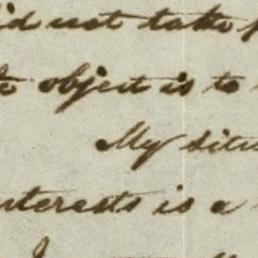 did not take
object is to
My situ
nterests is a